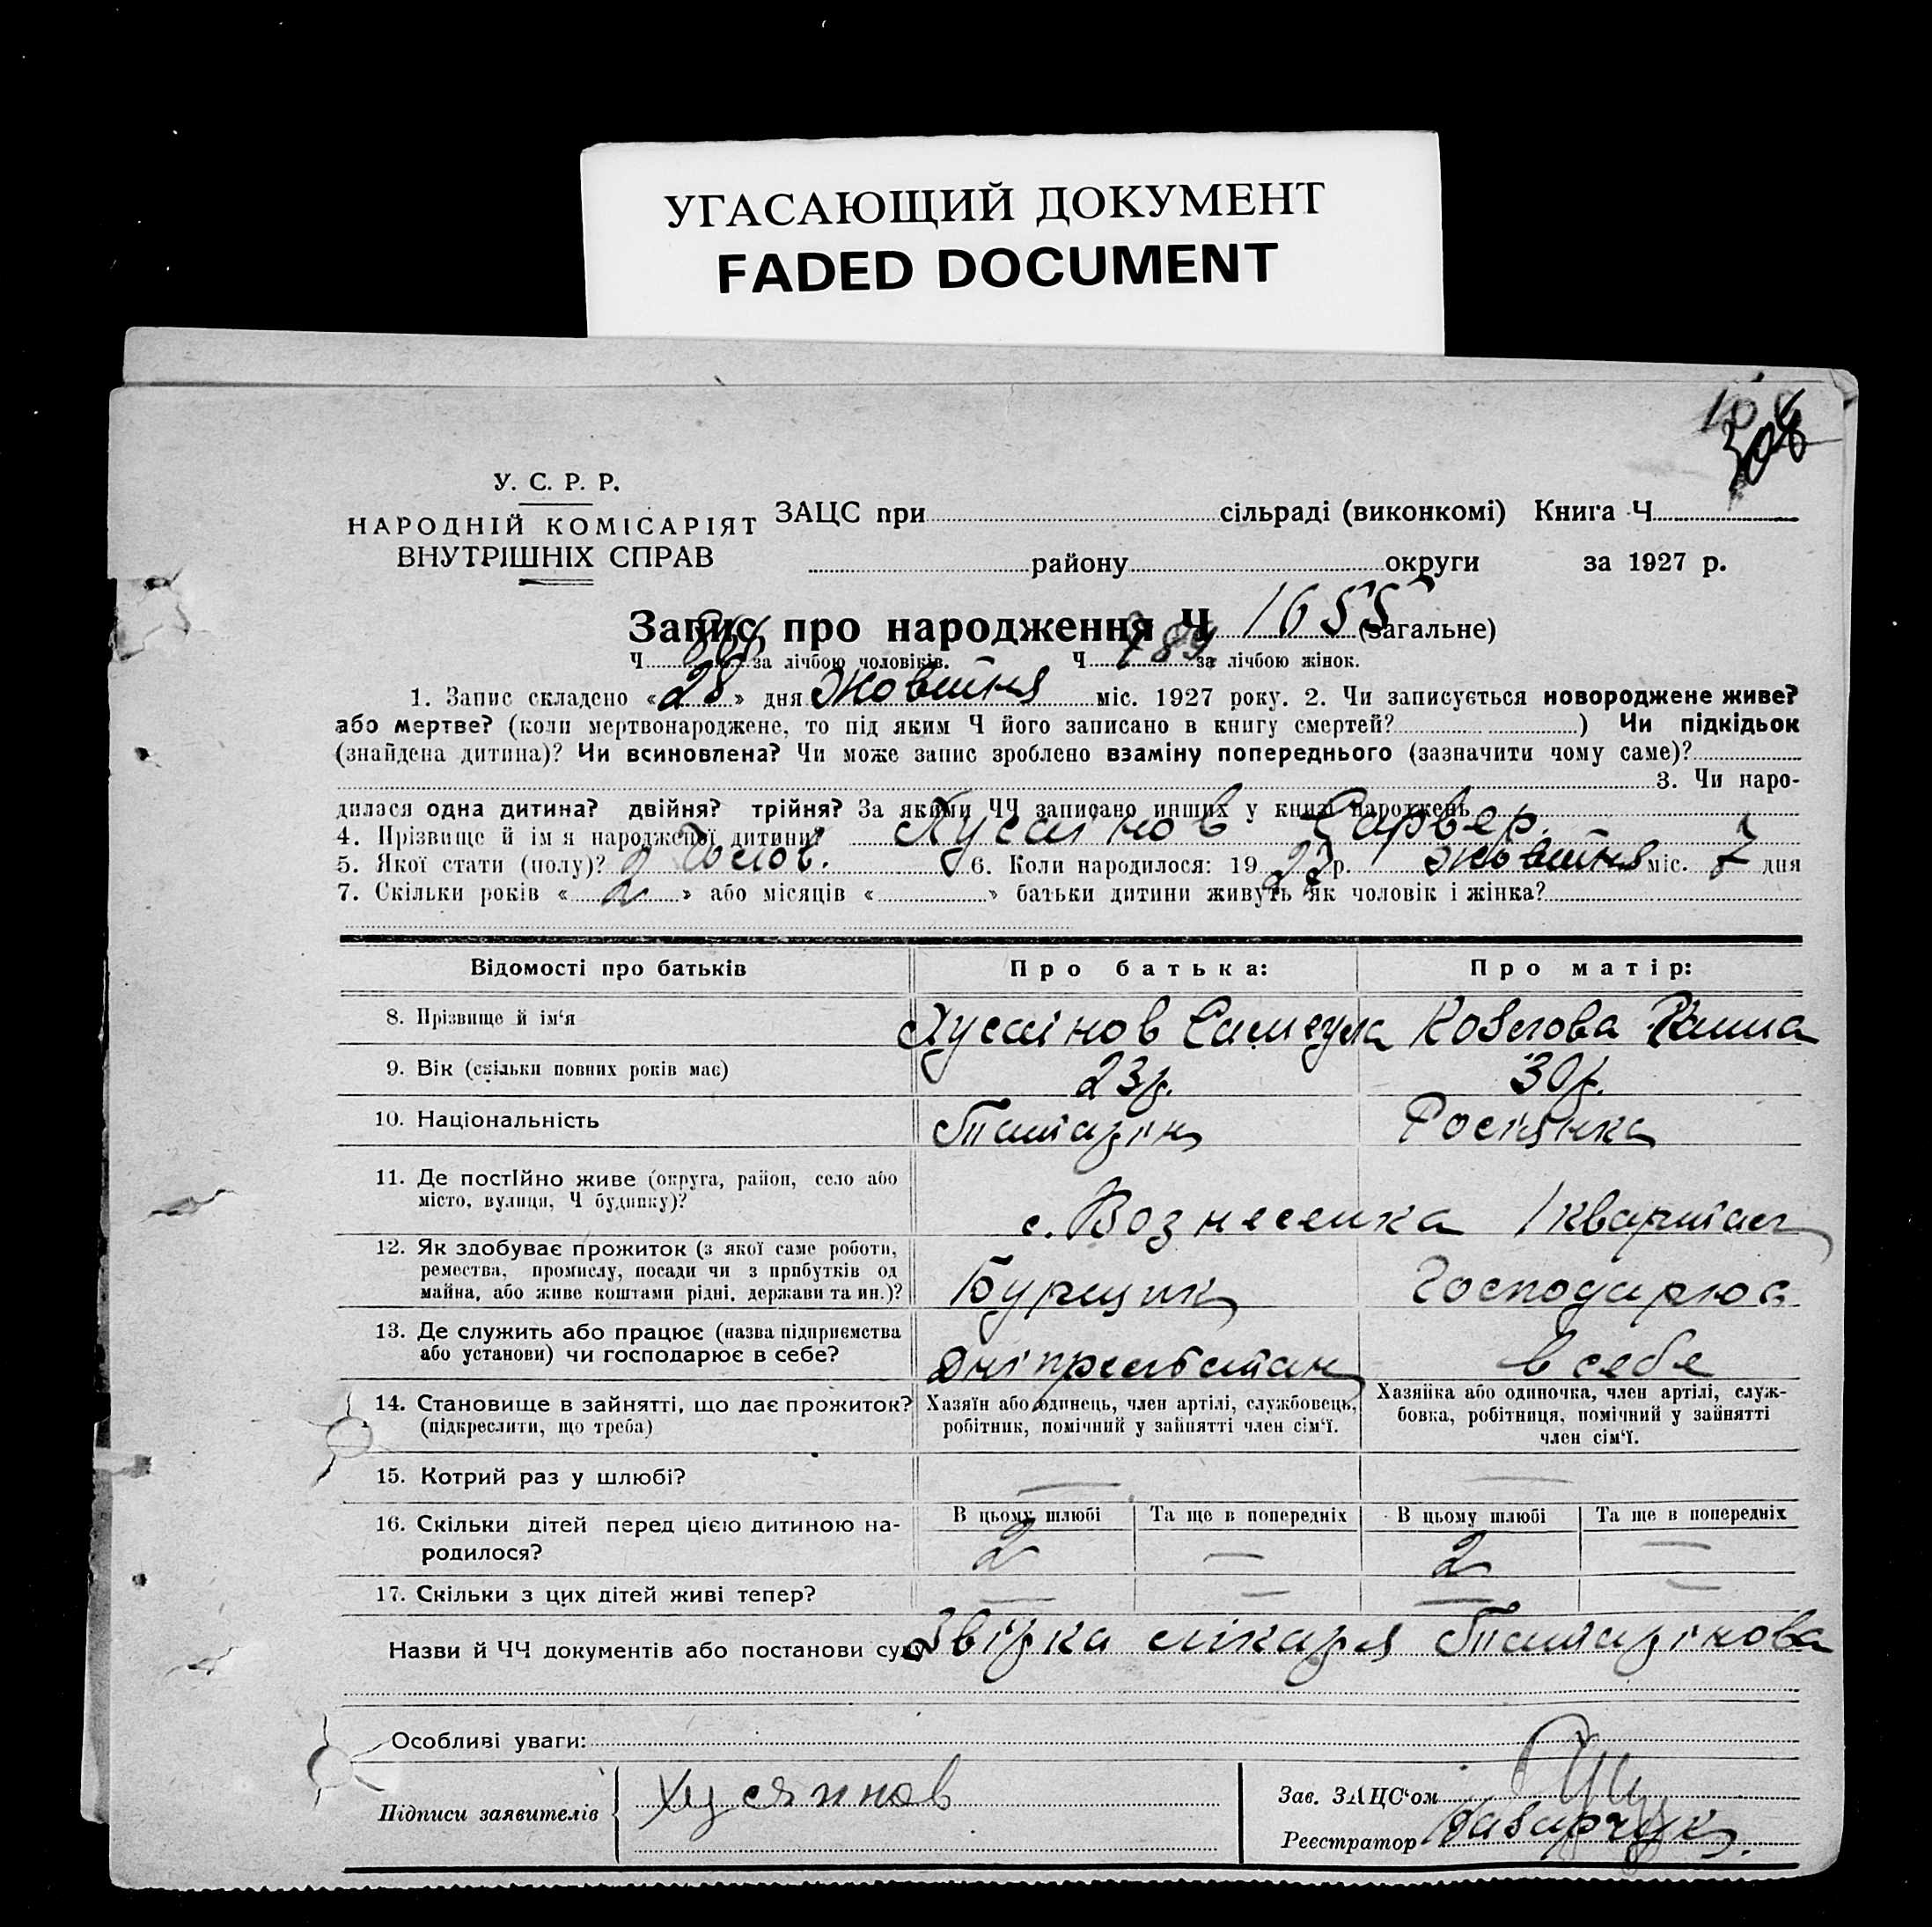 УГАСАЮЩИЙ ДОКУМЕНТ
FADED DOCUMENT
308
У. С. Р. Р.
НАРОДНІЙ КОМІСАРІЯТ
ВНУТРІШНІХ СПРАВ
ЗАЦС при сільраді (виконкомі) Книга Ч
району округи за 1927 р.
Запис про народження Ч 1655 (загальне)
Ч 866 за лічбою чоловіків. Ч 789 за лічбою жінок.
1. Запис складено «28» дня Жовтня міс. 1927 року. 2. Чи записується новороджене живе?
або мертве? (коли мертвонароджене, то під яким Ч його записано в книгу смертей? ) Чи підкідьок
(знайдена дитина)? Чи всиновлена? Чи може запис зроблено взаміну попереднього (зазначити чому саме)?
3. Чи наро-
дилася одна дитина? двійня? трійня? За якими ЧЧ записано инших у книзі народжень
4. Прізвище й ім'я народженої дитини? Хусаінов
5. Якої статі (полу)? Чолов. 6. Коли народилося: 1927 р. Жовтня міс. 7 дня
7. Скільки років «2» або місяців « » батьки дитини живуть як чоловік і жінка?
Відомості про батьків
Про батька:
Про матір:
8. Прізвище й ім'я
Хусаінов
Козлова
9. Вік (скільки повних років має)
23р.
30р.
10. Національність
Татарін
Росіянка
11. Де постійно живе (округа, район, село або
місто, вулиця, Ч будинку)?
с. Вознесенка 1 квартал
12. Як здобуває прожиток (з якої саме роботи,
ремества, промислу, посади чи з прибутків од
майна, або живе коштами рідні, держави та ин.)?
Бурщик
Господарює
13. Де служить або працює (назва підприємства
або установи) чи господарює в себе?
в себе
14. Становище в зайнятті, що дає прожиток?
(підкреслити, що треба)
Хазяїн або одинець, член артілі, службовець,
робітник, помічний у зайнятті член сім'ї.
Хазяйка або одиночка, член артілі, служ-
бовка, робітниця, помічний у зайнятті
член сім'ї.
15. Котрий раз у шлюбі?
—
—
16. Скільки дітей перед цією дитиною на-
родилося?
В цьому шлюбі
Та ще в попередніх
В цьому шлюбі
Та ще в попередніх
2
—
2
—
17. Скільки з цих дітей живі тепер?
—
—
—
—
Назви й ЧЧ документів або постанови суду Звірка лікаря Татарінова
Особливі уваги:
Підписи заявителів
Хусяинов
Зав. ЗАЦС'ом
Реєстратор